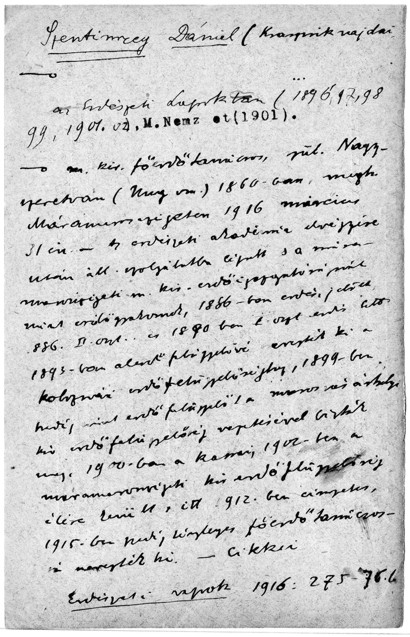 Szentimrey Dániel (Krasznik vajdai
—o
az Erdészeti Lapoktan (1896, 97, 98
99, 1901. 02), M.Nemz et(1901).
—o m. kir. főerdőtanácsos, szül. Nagy-
szeretván (Ung vm.) 1860-ban, megh.
Máramarosszigeten 1916 március
31 én. — Az erdészeti akadémia elvégzése
után áll. szolgálatba lépett s a mára-
marosszigeti m. kir. erdőigazgatóságnál
mint erdőgyakornok, 1886-ban erdőjelölt
886. II. oszt. és 1890 ben I. oszt. erdő
1893-ban alerdőfelügyelővé nevezték ki a
kolozsvári erdőfelügyelőséghez, 1899-ben
pedig mint erdőfelügyelőt a marosvásárhelyi
kir erdőfelügyelőség vezetésével bízták
meg, 1900-ban a kassai, 1902-ben a
máramarosszigeti kir erdőfelügyelőség
élére került, itt 912-ben címzetes,
1915-ben pedig tényleges főerdőtanácsos-
sá nevezték ki. — Cikkei
Erdészeti Lapok 1916: 275-76. l.